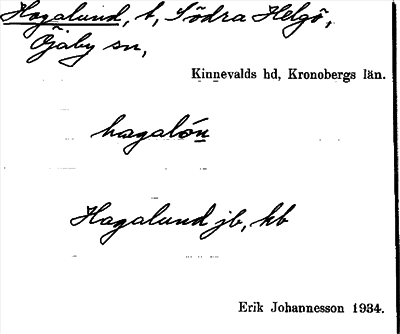 Hagalund, t, Södra Helgö,
Öjaby sn,
Kinnevalds hd, Kronobergs län.
hagalón
Hagalund jb, kb
Erik Johannesson 1934.